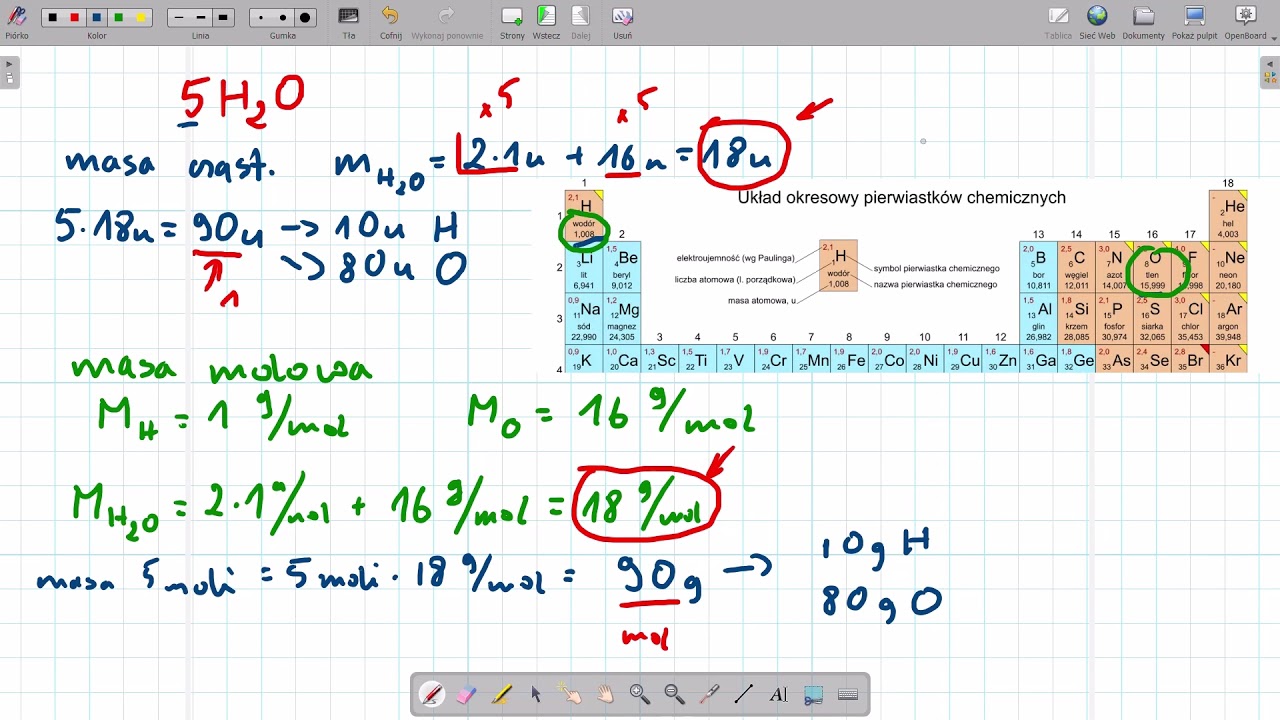 Piórko Kolor Linia Gumka Tła Cofnij Wykonaj ponownie Strony Wstecz Dalej Usuń Tablica Sieć Web Dokumenty Pokaż pulpit OpenBoard
5H₂O
x5 x5
masa cząst. m H₂O = 2·1u + 16u = 18u
5·18u = 90u → 10u H
→ 80u O
1
Układ okresowy pierwiastków chemicznych
1 2 3 4 5 6 7 8 9 10 11 12 13 14 15 16 17 18
1 2 3 4
2,1 1H wodór 1,008
- 2He hel 4,003
Li lit 6,941
1,5 4Be beryl 9,012
2,0 5B bor 10,811
2,5 6C węgiel 12,011
3,0 7N azot 14,007
O tlen 15,999
F
- 10Ne neon 20,180
0,9 11Na sód 22,990
1,2 12Mg magnez 24,305
1,5 13Al glin 26,982
1,8 14Si krzem 28,085
2,1 15P fosfor 30,974
2,5 16S siarka 32,065
3,0 17Cl chlor 35,453
- 18Ar argon 39,948
0,9 19K
1,0 20Ca
1,3 21Sc
1,5 22Ti
1,7 23V
1,9 24Cr
1,7 25Mn
1,9 26Fe
2,0 27Co
2,0 28Ni
1,9 29Cu
1,6 30Zn
1,6 31Ga
1,8 32Ge
2,0 33As
2,4 34Se
2,8 35Br
- 36Kr
elektroujemność (wg Paulinga)
liczba atomowa (l. porządkowa)
masa atomowa, u
2,1 1H wodór 1,008
symbol pierwiastka chemicznego
nazwa pierwiastka chemicznego
masa molowa
M H = 1 g/mol M O = 16 g/mol
M H₂O = 2·1 g/mol + 16 g/mol = 18 g/mol
masa 5 moli = 5 moli · 18 g/mol = 90 g → 10g H
80g O
mol
AI